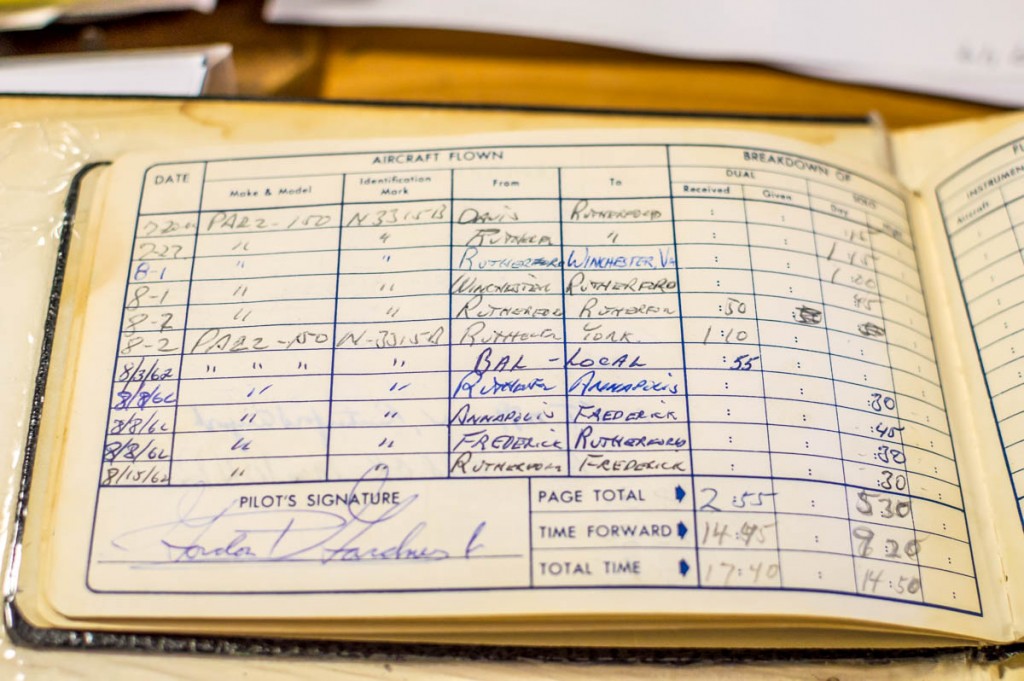 AIRCRAFT FLOWN BREAKDOWN OF
DATE Make & Model Identification Mark From To DUAL SOLO
Received Given Day
PA22-150 N3315B DAVIS RUTHERFORD : :
7-27 " " " : : 1 45
8-1 " " RUTHERFORD WINCHESTER, VA : : 1 20
8-1 " " WINCHESTER RUTHERFORD : : 45
8-2 " " RUTHERFORD RUTHERFORD :50
8-2 PA22-150 N-3315B YORK. 1:10 :
8/3/62 " " " " BAL - LOCAL :55 :
8/8/62 " " ANNAPOLIS : : :30
8/8/62 " " ANNAPOLIS FREDERICK : : :45
8/8/62 " " FREDERICK RUTHERFORD : : :30
8/15/62 " RUTHERFORD FREDERICK : : :30
PILOT'S SIGNATURE PAGE TOTAL 2:55 : 5:30 :
Gordon D Gardner Jr TIME FORWARD 14:45 : 9:20 :
TOTAL TIME 17:40 : 14:50 :
INSTRUMENT
Aircraft